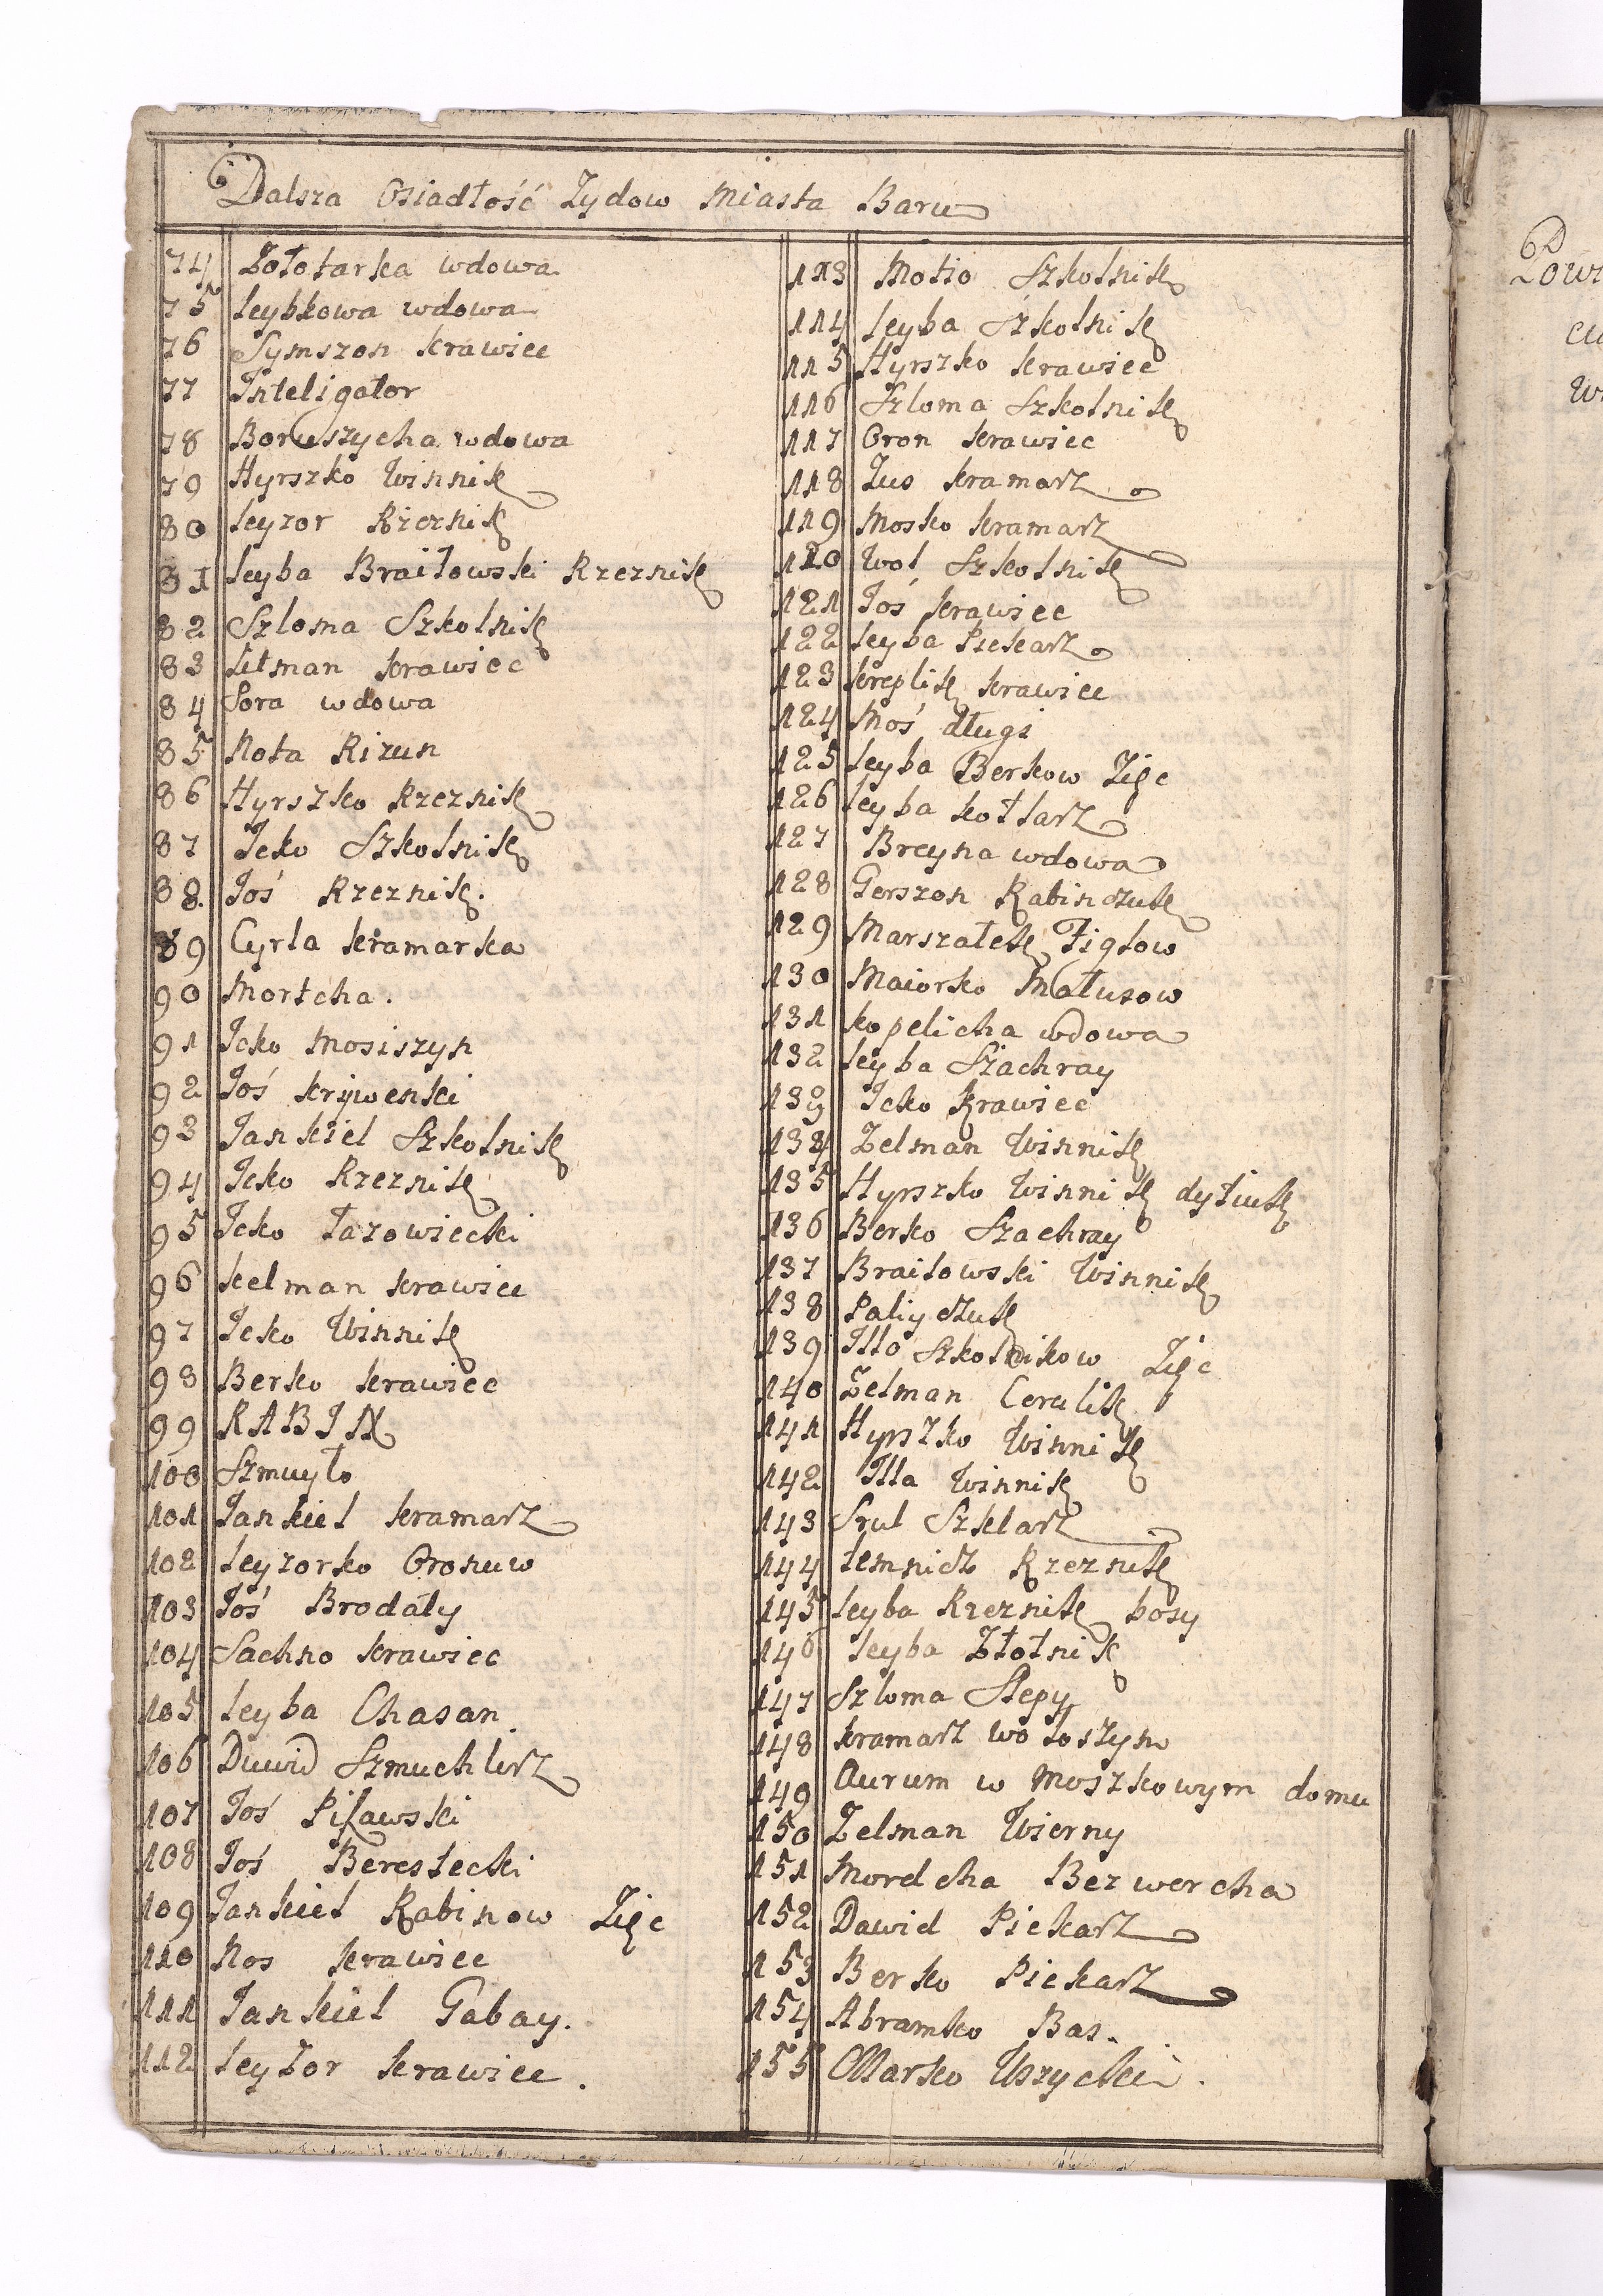 Dalsza Osiadłość Zydow Miasta Baru
74 Zołotarka wdowa
75 Leybkowa wdowa
76 Symszon krawiec
77 Inteligator
78 Boruszycha wdowa
79 Hyrszko Winnik
80 Leyzor Rzeznik
81 Leyba Braiłowski Rzeznik
82 Szloma Szkolnik
83 Litman krawiec
84 Sora wdowa
85 Nota Rizun
86 Hyrszko Rzeznik
87 Icko Szkolnik
88. Joś Rzeznik.
89 Cyrla kramarka
90 Mortcha.
91 Icko Mosiszyn
92 Joś krywenki
93 Jankiel Szkolnik
94 Icko Rzeznik
95 Icko Łazowiecki
96 kelman krawiec
97 Icko Winnik
98 Berko krawiec
99 RABIN
100 Szmuyło
101 Jankiel kramarz
102 Leyzorko Oronuw
103 Joś Brodaty
104 Sachno krawiec
105 Leyba Chasan
106 Duwid Szmuchlerz
107 Joś Pilawski
108 Joś Berestecki
109 Jankiel Rabinow Zięc
110 Nos krawiec
111 Jankiel Gabay.
112 Leyzor krawiec.
113 Motio Szkolnik
114 Leyba Szkolnik
115 Hyrszko krawiec
116 Szloma Szkolnik
117 Oron krawiec
118 Zus kramarz
119 Mosko kramarz
120 Wol Szkolnik
121 Joś krawiec
122 Leyba Piekarz
123 kreplik krawiec
124 Moś długi
125 Leyba Berkow Zięc
126 Leyba kotlarz
127 Breyna wdowa
128 Gerszon Rabinczuk
129 Marszałek Figlow
130 Maiorko Matusow
131 kopelicha wdowa
132 Leyba Szachray
133 Icko Krawiec
134 Zelman Winnik
135 Hyrszko Winnik dytiuk
136 Berko Szachray
137 Braiłowski Winnik
138 Paliyczuk
139 Illo Szkolnikow Zięc
140 Zelman Cerulik
141 Hyrszko Winnik
142 Illa Winnik
143 Srul Szklarz
144 Lemnicz Rzeznik
145 Leyba Rzeznik bosy
146 Leyba Złotnik
147 Szloma Slepy
148 kramarz wołoszyn
149 Aurum w Moszkowym domu
150 Zelman Wierny
151 Mordcha Bezwercha
152 Dawid Piekarz
153 Berko Piekarz
154 Abramko Bas.
155 Marko Uszycki.